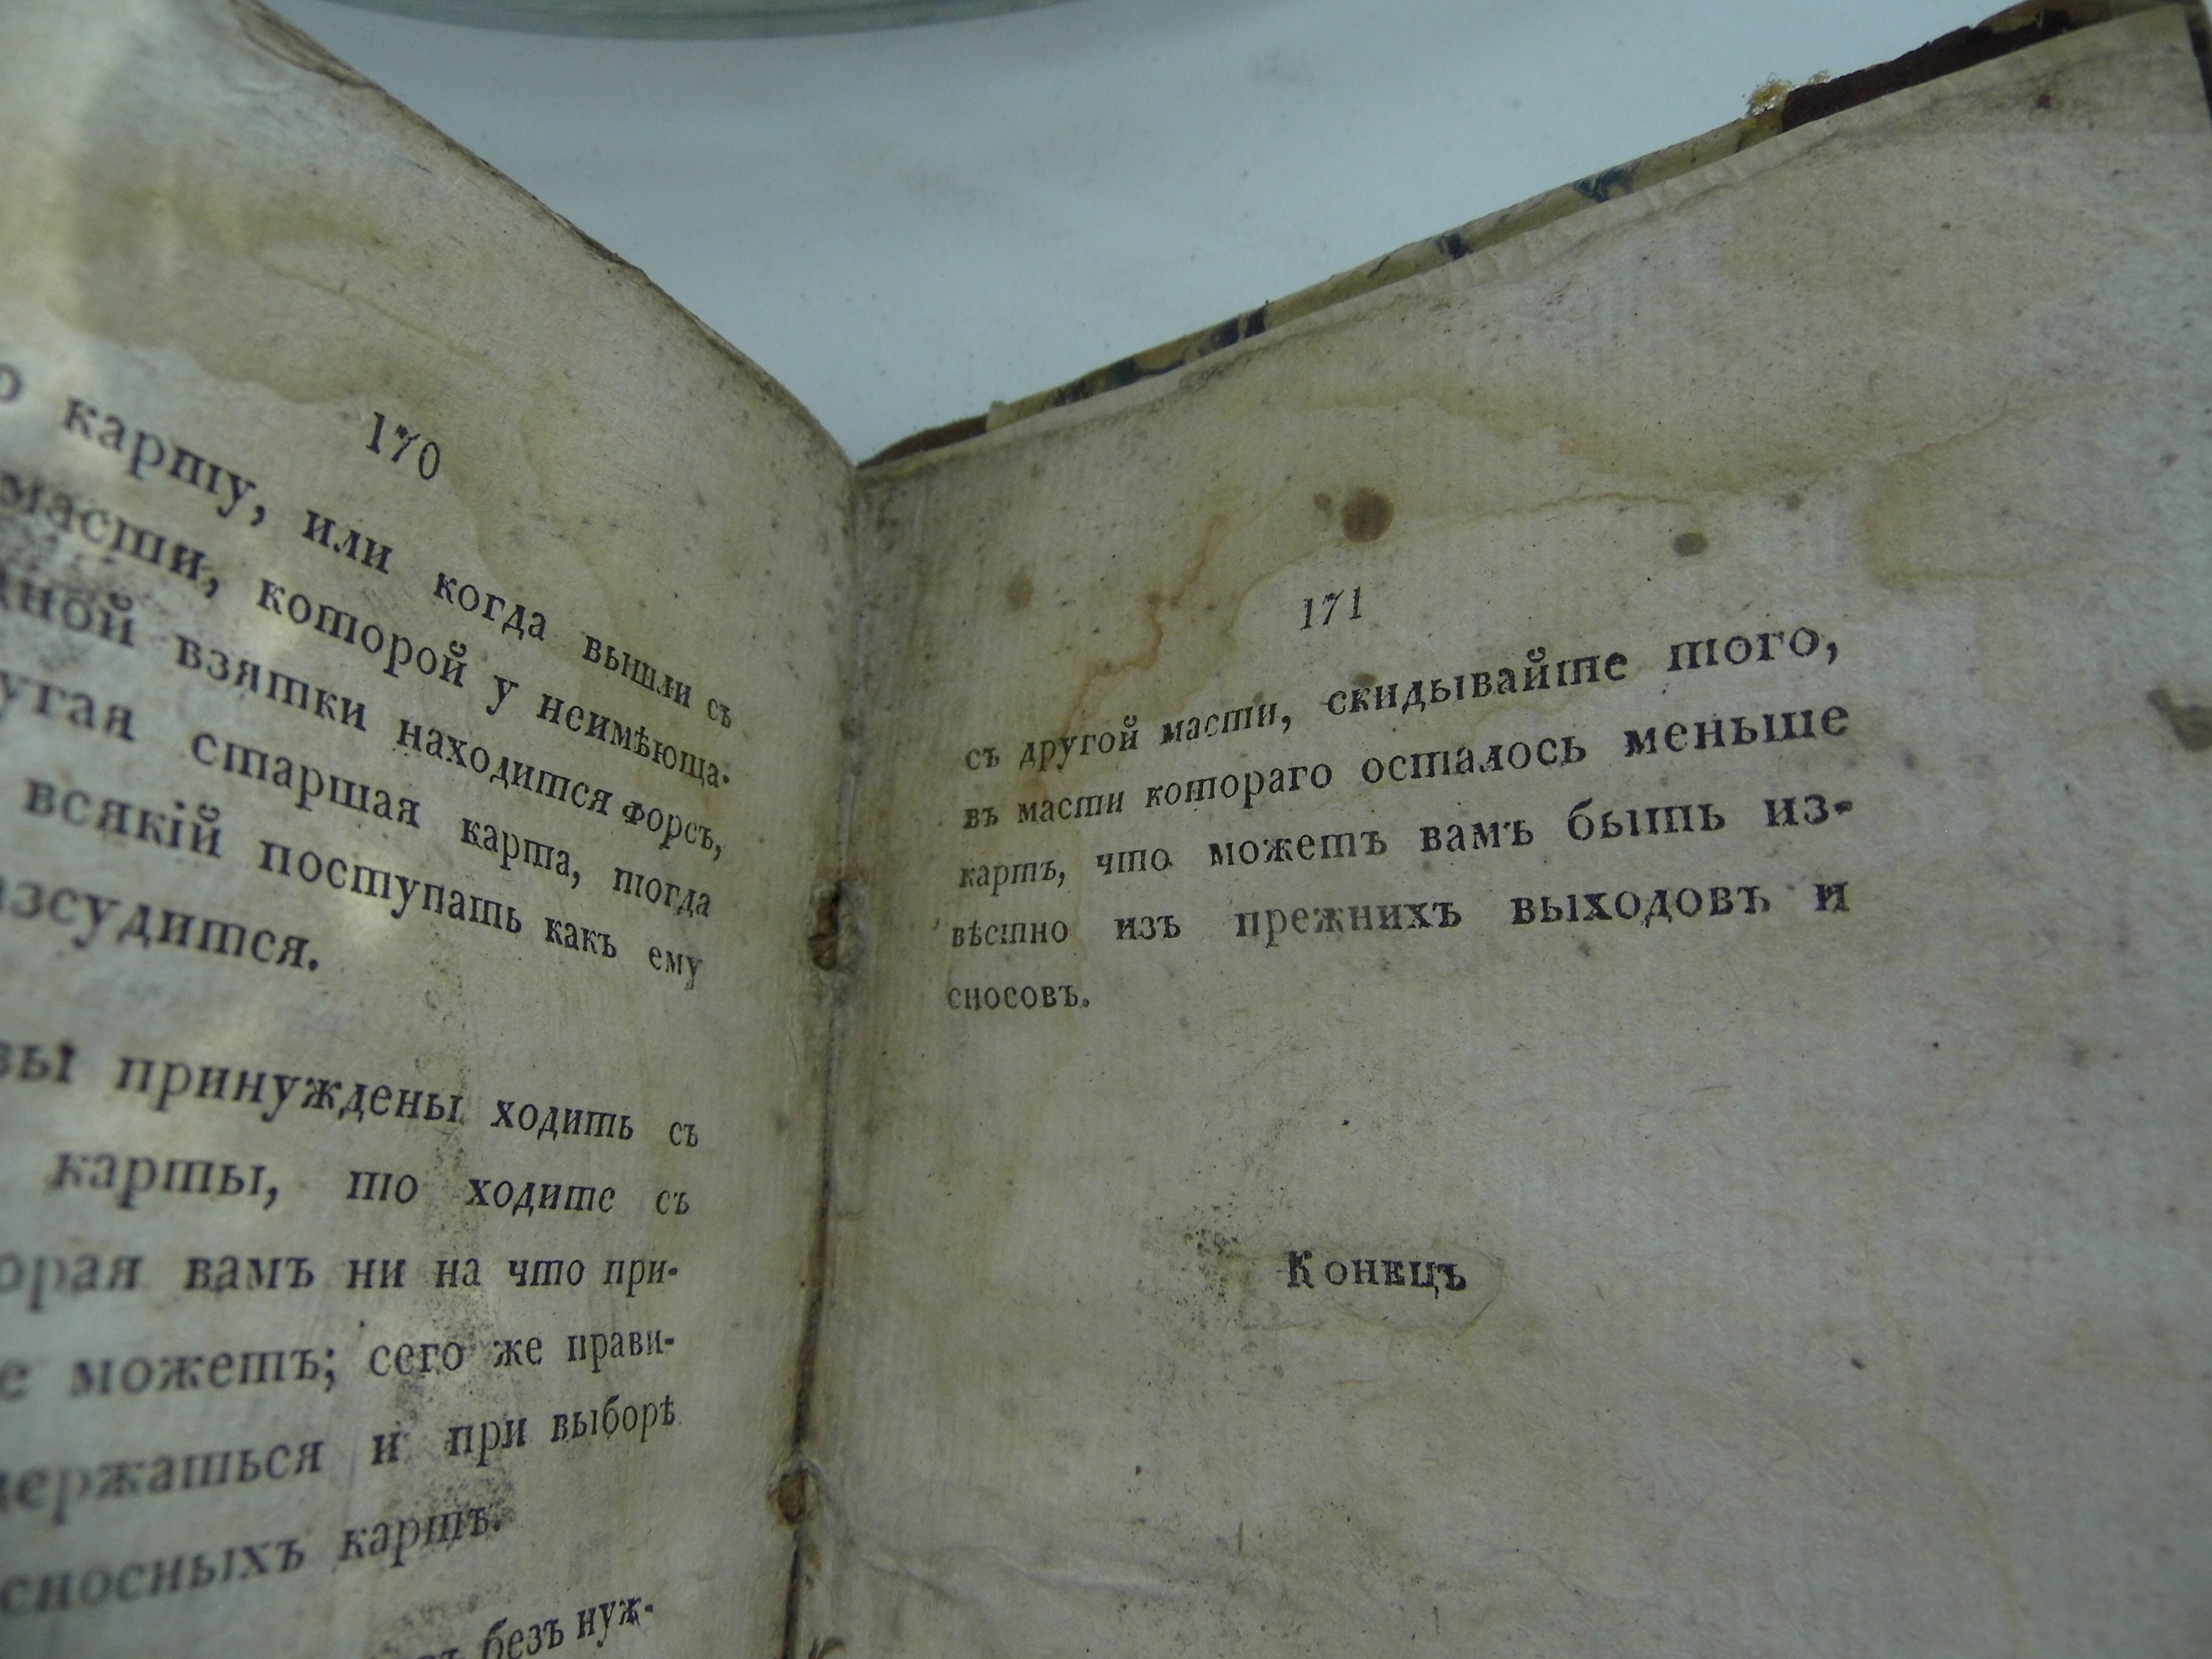 170
карту, или когда вышли съ
масти, которой у неимѣюща-
взятки находится форсъ,
старшая карта, тогда
всякій поступать какъ ему
вы принуждены ходить съ
карты, то ходите съ
вамъ ни на что при-
можетъ; сего же прави-
и при выборѣ
сносныхъ картъ.
безъ нуж-
171
съ другой масти, скидывайте того,
въ масти котораго осталось меньше
картъ, что можетъ вамъ быть из-
вѣстно изъ прежнихъ выходовъ и
сносовъ.
Конецъ